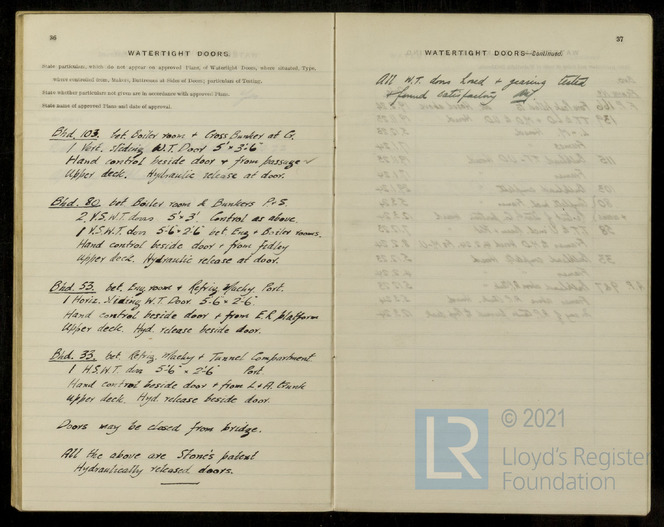 36
WATERTIGHT DOORS.
State particulars, which do not appear on approved Plans, of Watertight Doors, where situated, Type,
where controlled from, Makers, Distances at Sides of Doors; particulars of Testing.
State whether particulars not given are in accordance with approved Plans.
State name of approved Plans and date of approval.
Bhd. 103. bet. Boiler room + Cross Bunker at C.
1 Vert. sliding W.T. Door 5' × 3'-6"
Hand control beside door + from passage
Upper deck. Hydraulic release at door.
Bhd. 80. bet Boiler room & Bunkers P+S
2 V.S.W.T. doors 5' × 3'. Control as above.
1 V.S.W.T. door 5'-6" × 2'-6" bet Eng + Boiler rooms.
Hand control beside door + from
Upper deck. Hydraulic release at door.
Bhd. 53. bet. Eng room & Refrig Machy Port.
1 Horiz. Sliding W.T. Door 5'-6" × 2'-6".
Hand control beside door + from E.R. platform
Upper deck. Hyd. release beside door.
Bhd. 33. bet. Refrig. Machy + Tunnel Compartment.
1 H.S.W.T. door 5'-6" × 2'-6" Port
Hand control beside door + from L & A. trunk
Upper deck. Hyd release beside door.
Doors may be closed from bridge.
All the above are Stone's patent
Hydraulically released doors.
37
WATERTIGHT DOORS—Continued.
All W.T. doors & gearing tested
+ found satisfactory
LR
© 2021
Lloyd's Register
Foundation